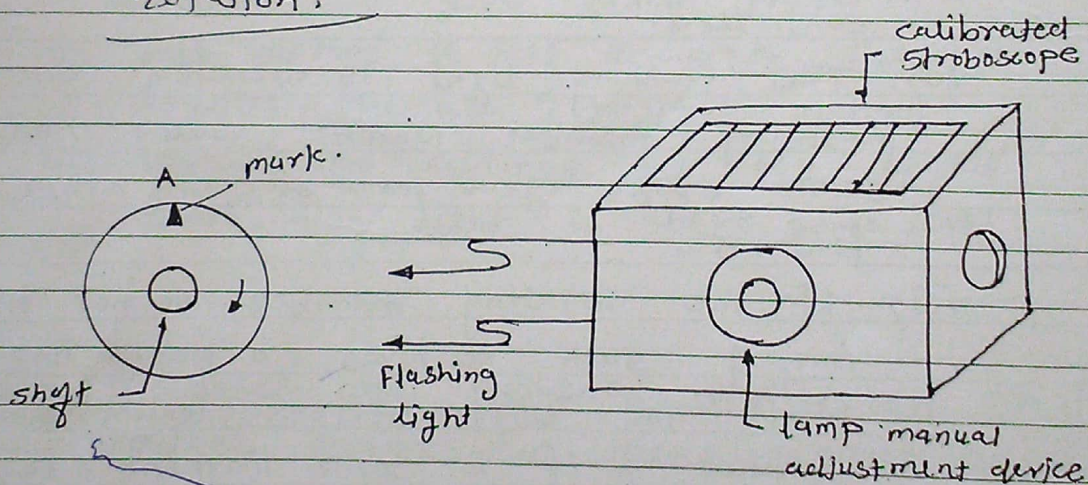 calibrated
stroboscope
mark.
A
shaft
Flashing
light
lamp manual
adjustment device